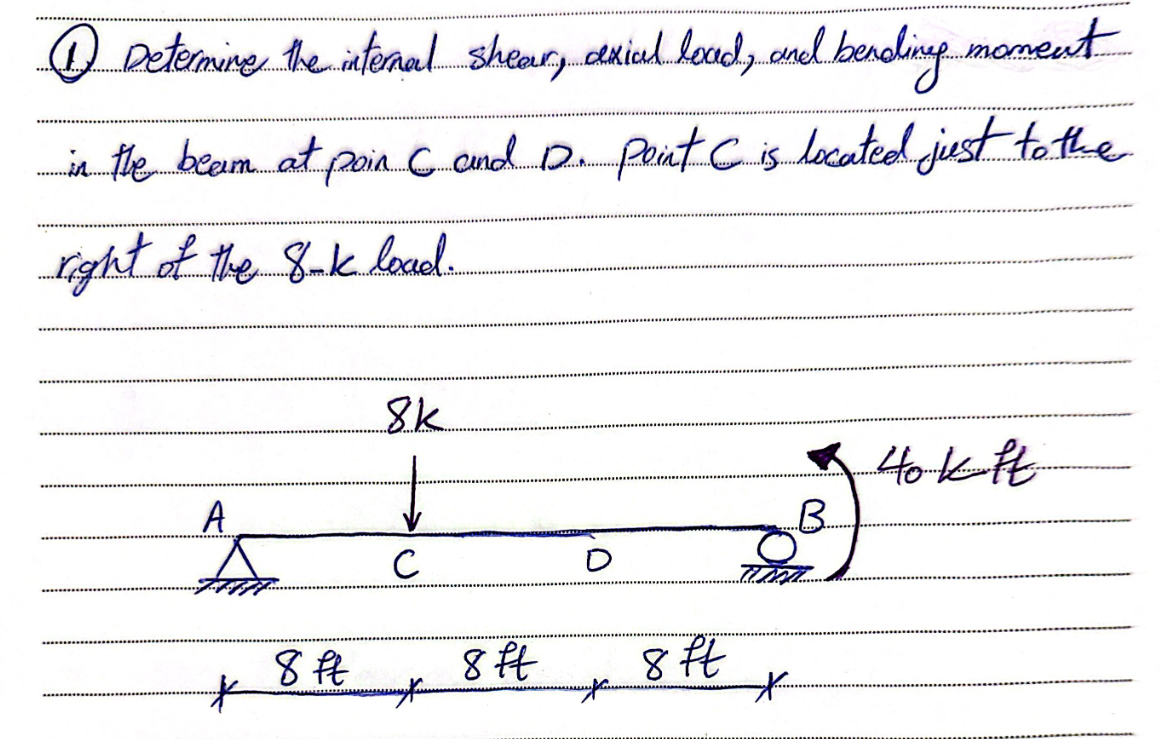 ① Determine the internal shear, axial load, and bending moment
in the beam at poin C and D. Point C is located just to the
right of the 8-k load.
8k
40 k-ft
A
B
C
D
8 ft
8 ft
8 ft